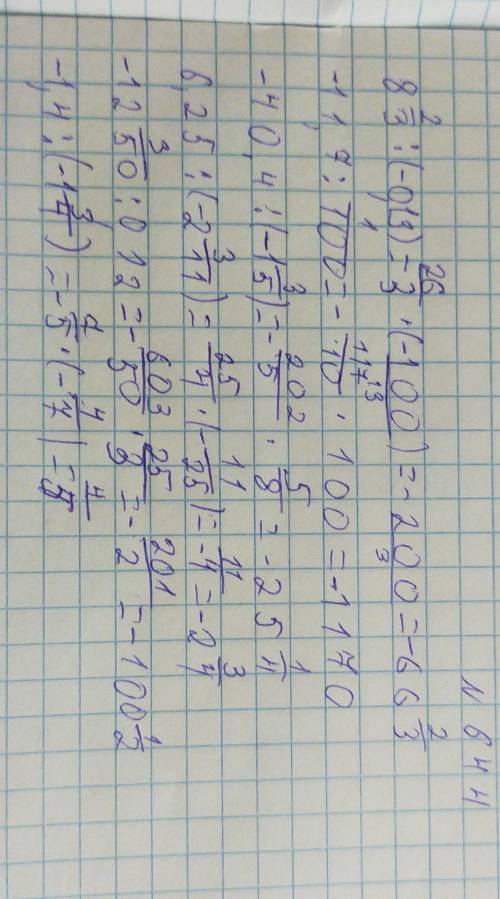 N 644
8 2/3 : (-0,13) = 26/3 · (-100/13) = -200/3 = -66 2/3
-11,7 : 1/100 = -117/10 · 100 = -1170
-40,4 : (-1 3/5) = -202/5 · 5/8 = -25 1/4
6,25 : (-2 3/11) = 25/4 · (-11/25) = -11/4 = -2 3/4
-12 3/50 : 0,12 = -603/50 · 25/3 = -201/2 = -100 1/2
-1,4 : (-1 3/4) = -7/5 · (-4/7) = 4/5